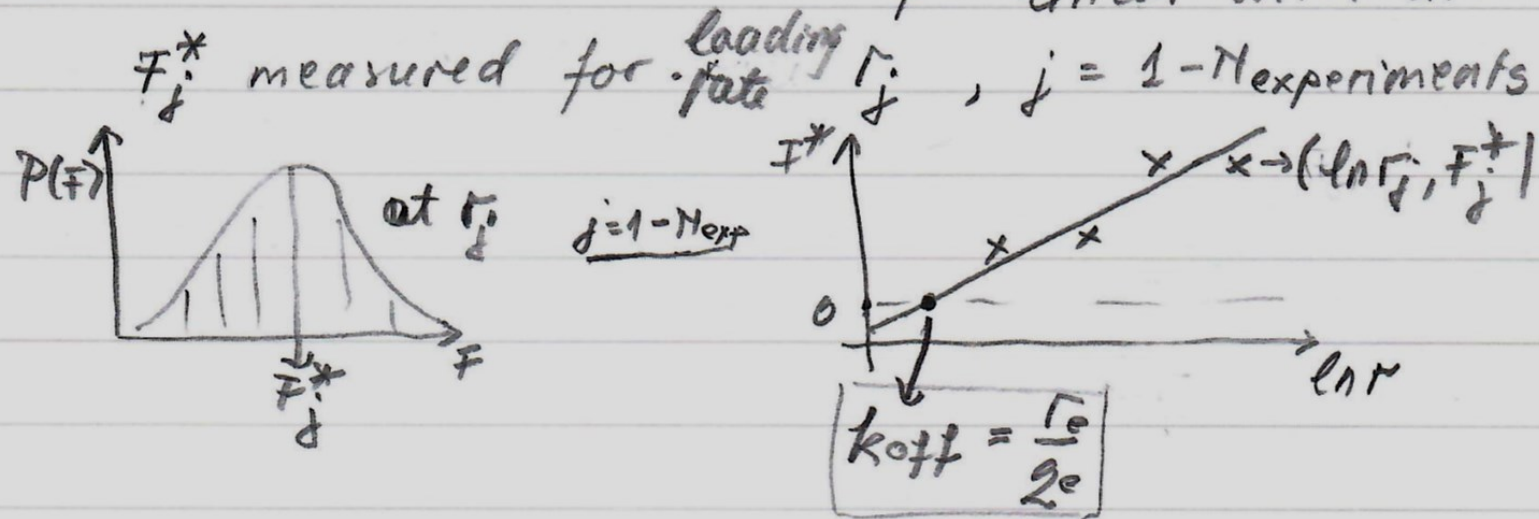 F*j measured for loading rate rj , j = 1 - Nexperiments
P(F)
at rj
j=1-Nexp
F*j
F
F*
x→(ln rj, F*j)
0
ln r
koff = re/ge